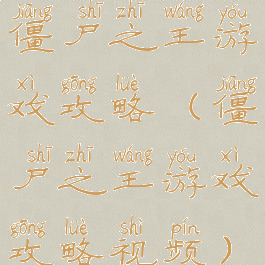 jiāng shī zhī wáng yóu
僵尸之王游
xì gōng lüè jiāng
戏攻略（僵
shī zhī wáng yóu xì
尸之王游戏
gōng lüè shì pín
攻略视频）